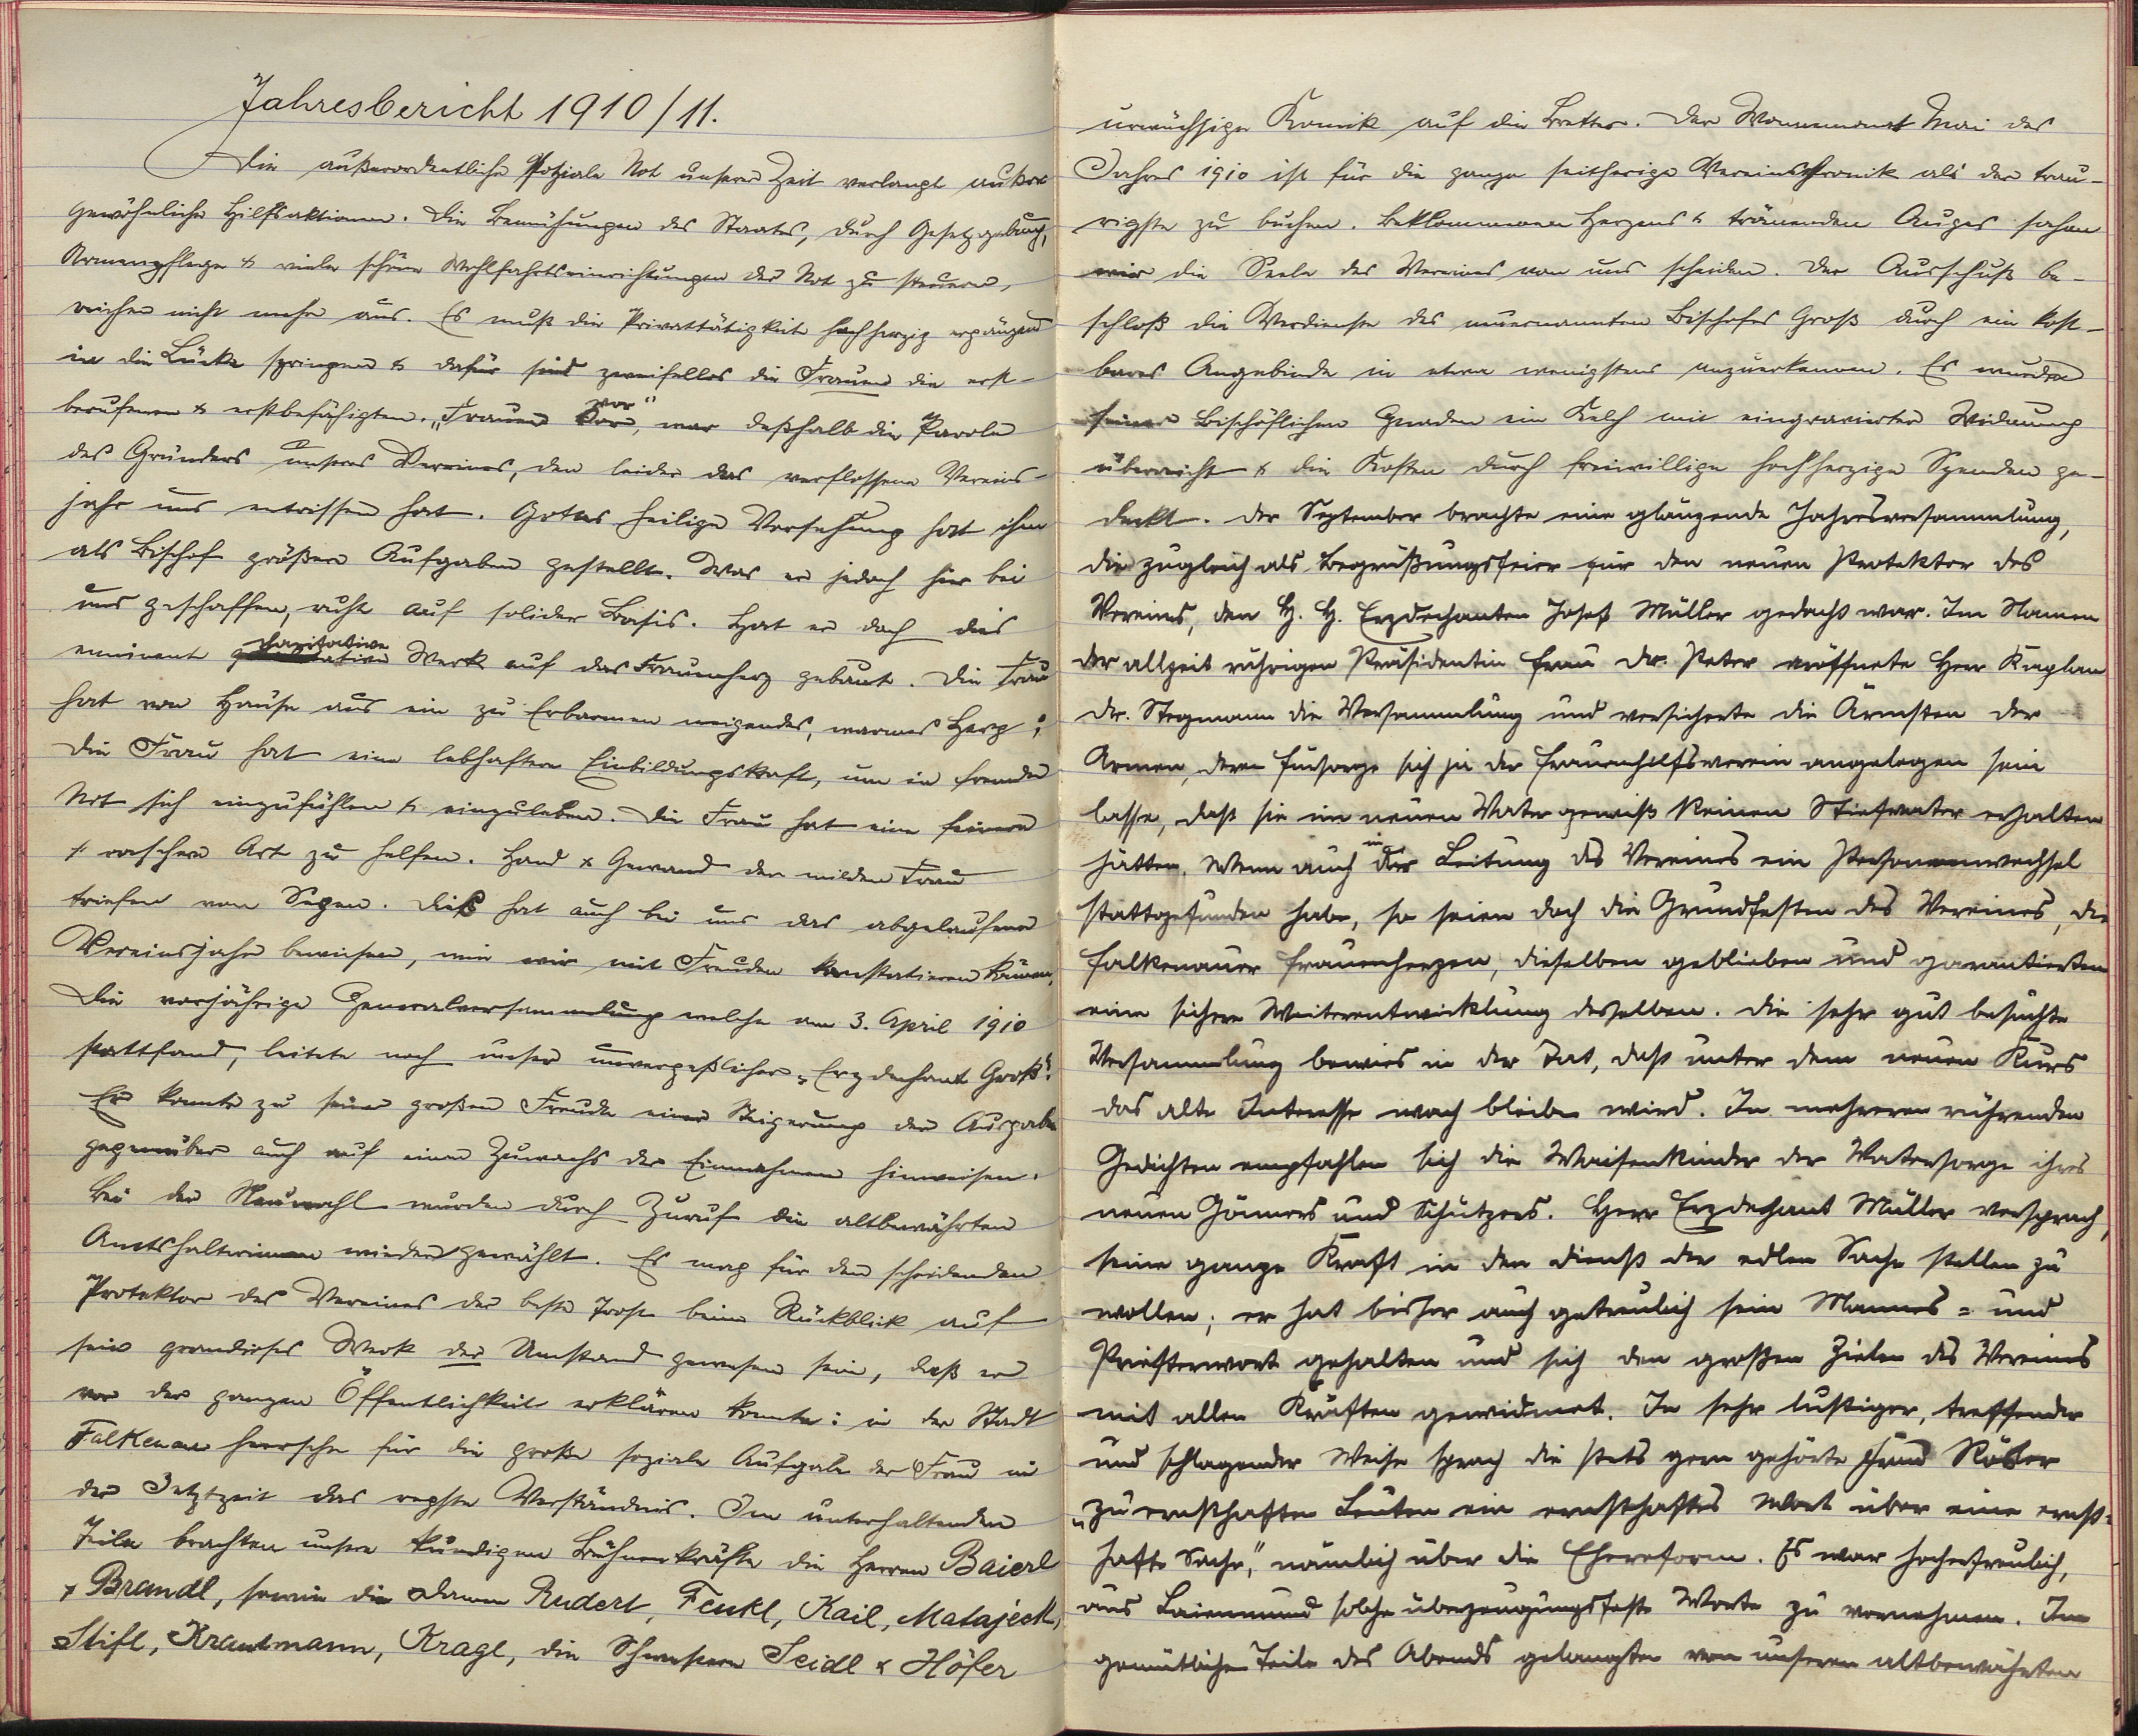 Jahresbericht 1910/11.
Die außerordentliche soziale Not unserer Zeit verlangt außer
gewöhnliche Hilfsaktionen. Die Bemühungen des Staates, durch Gesetzgebung,
Armenpflege & viele schöne Wohlfahrtseinrichtungen der Not zu steuern,
reichen nicht mehr aus. Es muß die Privattätigkeit hochherzig ergänzend
in die Lücke springen & dafür sind zweifellos die Frauen die erst-
berufenen & erstbefähigten. „Frauen vor", war deßhalb die Parole
des Gründers unseres Vereines, den leider das verflossene Vereins-
jahr uns entrissen hat. Gottes heilige Vorsehung hat ihm
als Bischof größere Aufgaben gestellt. Was er jedoch hier bei
uns geschaffen, ruht auf solider Basis. Hat er doch dies
eminent charitative Werk auf das Frauenherz gebaut. Die Frau
hat von Hause aus ein zu Erbarmen neigendes, warmes Herz;
die Frau hat eine lebhaftere Einbildungskraft, um in fremde
Not sich einzufühlen & einzuleben. Die Frau hat eine feinere
& raschere Art zu helfen. Hand & Gewand der milden Frau
triefen von Segen. Dieß hat auch bei uns das abgelaufene
Vereinsjahr bewiesen, wie wir mit Freuden konstatieren können.
Die vorjährige Generalversammlung welche am 3. April 1910
stattfand, leitete noch unser unvergeßlicher „Erzdechant Groß".
Er konnte zu seiner großen Freude einer Steigerung der Ausgaben
gegenüber auch auf einen Zuwachs der Einnahmen hinweisen.
Bei der Neuwahl wurden durch Zuruf die altbewährten
Amtshalterinnen wiedergewählt. Es mag für den scheidenden
Protektor des Vereines der beste Trost beim Rückblick auf
sein grandioses Werk der Umstand gewesen sein, daß er
vor der ganzen Öffentlichkeit erklären konnte: in der Stadt
Falkenau herrsche für die große soziale Aufgabe der Frau in
der Jetztzeit das regste Verständnis. Im unterhaltenden
Teile brachten unsere kundigen Bühnenkräfte die Herren Baierl
& Brandl, sowie die Damen Rudert, Fenkl, Kail, Matajeck,
Stifl, Krautmann, Kragl, die Schwestern Seidl & Höfer
urwüchsige Komik auf die Bretter. Der Wonnemonat Mai des
Jahres 1910 ist für die ganze seitherige Vereinschronik als der trau-
rigste zu buchen. Beklommenen Herzens & tränenden Auges sahen
wir die Seele des Vereines von uns scheiden. Der Ausschuß be-
schloß die Verdienste des neuernannten Bischofes Groß durch ein kost-
bares Angebinde in etwa wenigstens anzuerkennen. Es wurden
seiner Bischöflichen Gnaden ein Kelch mit eingravierter Widmung
überreicht & die Kosten durch freiwillige hochherzige Spenden ge-
deckt. Der September brachte eine glänzende Jahresversammlung,
die zugleich als Begrüßungsfeier für den neuen Protektor des
Vereins, den H. H. Erzdechanten Josef Müller gedacht war. Im Namen
der allzeit rührigen Präsidentin Frau Dr. Peter eröffnete Herr Kaplan
Dr. Stegmann die Versammlung und versicherte die Ärmsten der
Armen, deren Fürsorge sich ja der Frauenhilfsverein angelegen sein
lasse, daß sie im neuen Vater gewiß keinen Stiefvater erhalten
hätten. Wenn auch in der Leitung des Vereines ein Personenwechsel
stattgefunden habe, so seien doch die Grundfesten des Vereines, die
Falkenauer Frauenherzen, dieselben geblieben und garantierten
eine sichere Weiterentwicklung desselben. Die sehr gut besuchte
Versammlung bewies in der Tat, daß unter dem neuen Kurs
das alte Interesse wach bleiben wird. In mehreren rührenden
Gedichten empfahlen sich die Waisenkinder der Vatersorge ihres
neuen Gönners und Schützers. Herr Erzdechant Müller versprach,
seine ganze Kraft in den Dienst der edlen Sache stellen zu
wollen; er hat bisher auch getreulich sein Mannes- und
Priesterwort gehalten und sich den großen Zielen des Vereins
mit allen Kräften gewidmet. In sehr lustiger, treffender
und schlagender Weise sprach die stets gern gehörte
„zu ernsthaften Leuten ein ernsthaftes Wort über eine ernst-
hafte Sache," nämlich über die Ehereform. Es war hocherfreulich,
aus Laienmund solche überzeugungsfeste Worte zu vernehmen. Im
gemütlichen Teile des Abends gelangten von unseren altbewährten